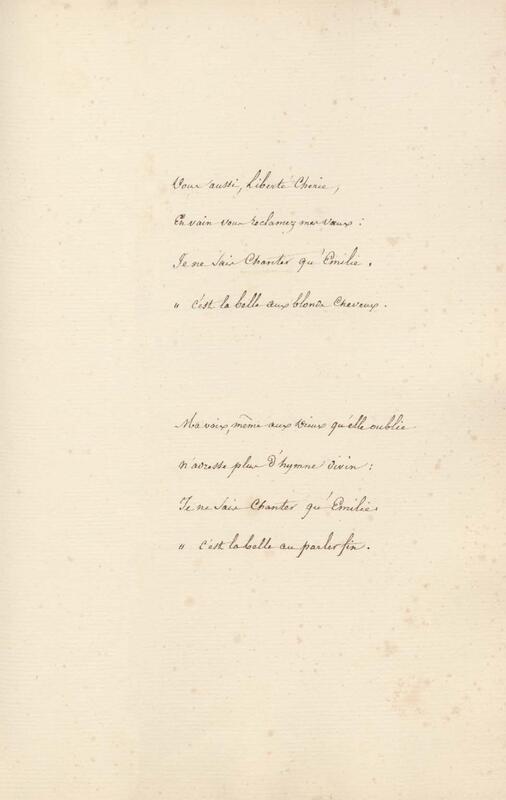 Vous aussi, Liberté Chérie,
En vain vous réclamez mes vœux :
Je ne Sais Chanter qu'Emilie.
" c'est la belle aux blonds Cheveux.
Ma voix, même aux Dieux qu'elle oublie
n'adresse plus d'hymne divin :
Je ne Sais Chanter qu'Emilie.
" c'est la belle au parler fin.